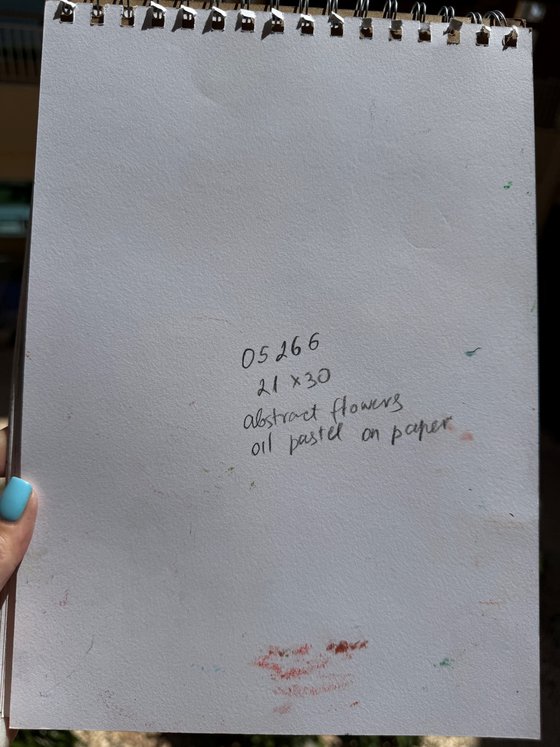 05266
21 x 30
abstract flowers
oil pastel on paper